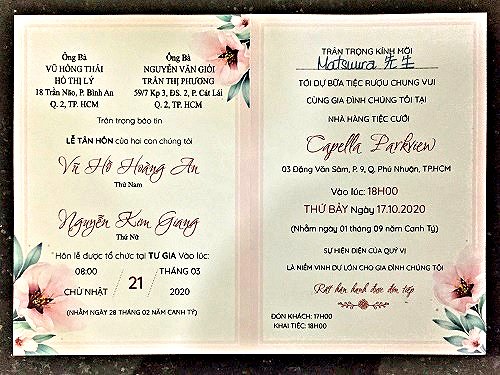 Ông Bà
VŨ HỒNG THÁI
HỒ THỊ LÝ
18 Trần Não, P. Bình An
Q. 2, TP. HCM
Ông Bà
NGUYỄN VĂN GIỎI
TRẦN THỊ PHƯƠNG
59/7 Kp 3, ĐS. 2, P. Cát Lái
Q. 2, TP. HCM
Trân trọng báo tin
LỄ TÂN HÔN của hai con chúng tôi
Vũ Hồ Hoàng An
Thứ Nam
Nguyễn Kim Giang
Thứ Nữ
Hôn lễ được tổ chức tại TƯ GIA Vào lúc:
08:00
CHỦ NHẬT
21
THÁNG 03
2020
(NHẰM NGÀY 28 THÁNG 02 NĂM CANH TÝ)
TRÂN TRỌNG KÍNH MỜI
Matsuura 先生
TỚI DỰ BỮA TIỆC RƯỢU CHUNG VUI
CÙNG GIA ĐÌNH CHÚNG TÔI TẠI
NHÀ HÀNG TIỆC CƯỚI
Capella Parkview
03 Đặng Văn Sâm, P. 9, Q. Phú Nhuận, TP.HCM
Vào lúc: 18H00
THỨ BẢY Ngày 17.10.2020
(Nhằm ngày 01 tháng 09 năm Canh Tý)
SỰ HIỆN DIỆN CỦA QUÝ VỊ
LÀ NIỀM VINH DỰ LỚN CHO GIA ĐÌNH CHÚNG TÔI
Rất hân hạnh được đón tiếp
ĐÓN KHÁCH: 17H00
KHAI TIỆC: 18H00